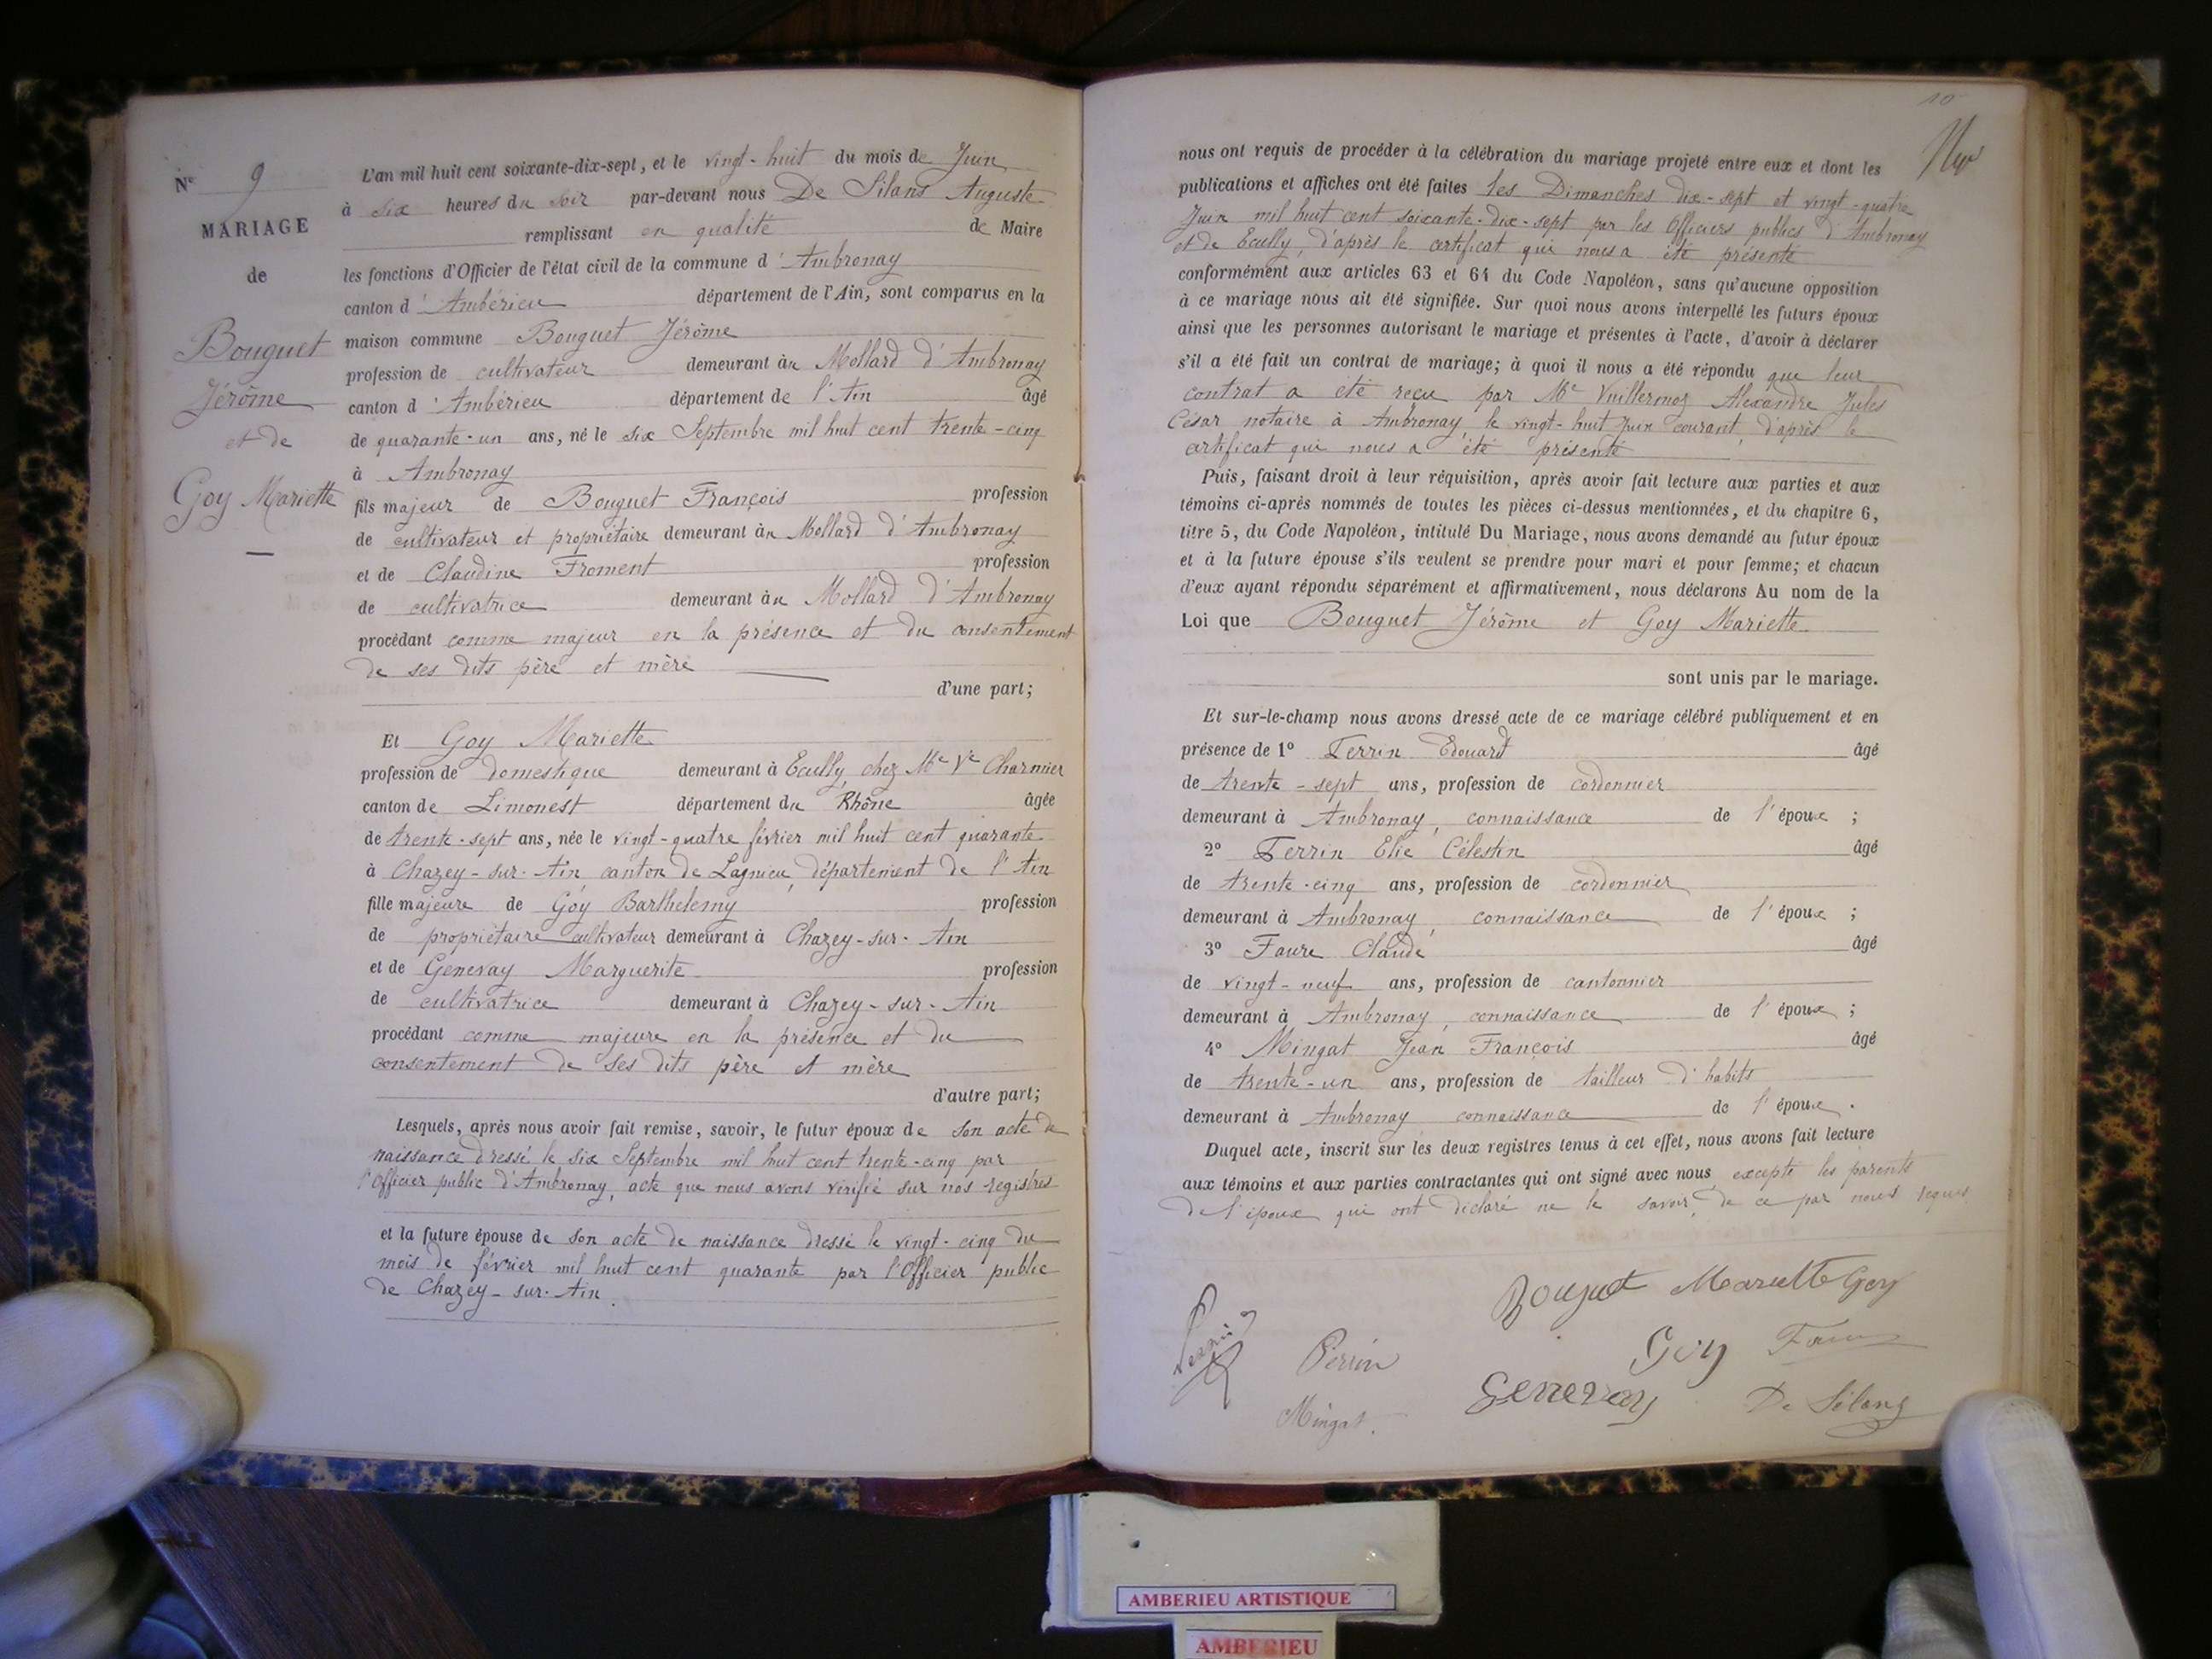 N° 9
MARIAGE
de
Bouguet
Jérôme
et de
Goy Mariette
L'an mil huit cent soixante-dix-sept, et le vingt-huit du mois de Juin
à six heures du soir par-devant nous De Silans Auguste
remplissant en qualité de Maire
les fonctions d'Officier de l'état civil de la commune d'Ambronay
canton d'Ambérieu département de l'Ain, sont comparus en la
maison commune Bouguet Jérôme
profession de cultivateur demeurant au Mollard d'Ambronay
canton d'Ambérieu département de l'Ain âgé
de quarante-un ans, né le six Septembre mil huit cent trente-cinq
à Ambronay
fils majeur de Bouguet François profession
de cultivateur et propriétaire demeurant au Mollard d'Ambronay
et de Claudine Froment profession
de cultivatrice demeurant au Mollard d'Ambronay
procédant comme majeur en la présence et du consentement
de ses dits père et mère
d'une part;
Et Goy Mariette
profession de domestique demeurant à Ecully chez Me Ve Charmier
canton de Limonest département du Rhône âgée
de trente-sept ans, née le vingt-quatre février mil huit cent quarante
à Chazey-sur-Ain canton de Lagnieu, département de l'Ain
fille majeure de Goy Barthelemy profession
de propriétaire cultivateur demeurant à Chazey-sur-Ain
et de Genevay Marguerite profession
de cultivatrice demeurant à Chazey-sur-Ain
procédant comme majeure en la présence et du
consentement de ses dits père et mère
d'autre part;
Lesquels, après nous avoir fait remise, savoir, le futur époux de son acte de
naissance dressé le six Septembre mil huit cent trente-cinq par
l'Officier public d'Ambronay, acte que nous avons vérifié sur nos registres
et la future épouse de son acte de naissance dressé le vingt-cinq du
mois de février mil huit cent quarante par l'Officier public
de Chazey-sur-Ain.
10
nous ont requis de procéder à la célébration du mariage projeté entre eux et dont les
publications et affiches ont été faites les Dimanches dix-sept et vingt-quatre
Juin mil huit cent soixante-dix-sept par les Officiers publics d'Ambronay
et de Ecully, d'après le certificat qui nous a été présenté
conformément aux articles 63 et 64 du Code Napoléon, sans qu'aucune opposition
à ce mariage nous ait été signifiée. Sur quoi nous avons interpellé les futurs époux
ainsi que les personnes autorisant le mariage et présentes à l'acte, d'avoir à déclarer
s'il a été fait un contrat de mariage; à quoi il nous a été répondu que leur
contrat a été reçu par Me Vuillermoz Alexandre Jules
César notaire à Ambronay le vingt-huit Juin courant, d'après le
certificat qui nous a été présenté
Puis, faisant droit à leur réquisition, après avoir fait lecture aux parties et aux
témoins ci-après nommés de toutes les pièces ci-dessus mentionnées, et du chapitre 6,
titre 5, du Code Napoléon, intitulé Du Mariage, nous avons demandé au futur époux
et à la future épouse s'ils veulent se prendre pour mari et pour femme; et chacun
d'eux ayant répondu séparément et affirmativement, nous déclarons Au nom de la
Loi que Bouguet Jérôme et Goy Mariette
sont unis par le mariage.
Et sur-le-champ nous avons dressé acte de ce mariage célébré publiquement et en
présence de 1° Perrin Edouard âgé
de trente-sept ans, profession de cordonnier
demeurant à Ambronay, connaissance de l'époux ;
2° Perrin Elie Célestin âgé
de trente-cinq ans, profession de cordonnier
demeurant à Ambronay, connaissance de l'époux ;
3° Faure Claude âgé
de vingt-neuf ans, profession de cantonnier
demeurant à Ambronay, connaissance de l'époux ;
4° Mingat Jean François âgé
de trente-un ans, profession de tailleur d'habits
demeurant à Ambronay connaissance de l'époux.
Duquel acte, inscrit sur les deux registres tenus à cet effet, nous avons fait lecture
aux témoins et aux parties contractantes qui ont signé avec nous excepté les parents
de l'époux qui ont déclaré ne le savoir, de ce par nous requis
Bouguet Mariette Goy
Perrin Perrin Goy Faure
Mingat. Genevay De Silans
AMBERIEU ARTISTIQUE
AMBERIEU